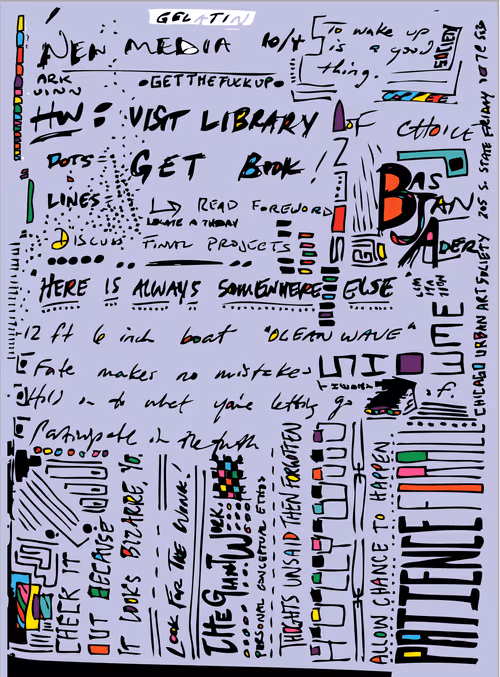 GELATIN
NEW MEDIA 10/4
ARK
VINN
•GETTHEFUCKUP•
To wake up
is a good
thing.
SOCIETY
HW: VISIT LIBRARY
OF CHOICE
DOTS
LINES
GET BOOK!
READ FOREWORD
LOCATE A THEORY
DISCUSS FINAL PROJECTS
BAS
JAN
ADER
HERE IS ALWAYS SOMEWHERE ELSE
12 ft 6 inch boat "OCEAN WAVE"
Fate makes no mistakes
Hold on to what you're letting go of.
Participate in the truth
CHICAGO URBAN ART SOCIETY 205 S. STATE FRIDAY
CHECK IT
OUT BECAUSE
IT LOOKS BIZARRE, YO.
LOOK FOR THE WINK!
THE GIANT WORK.
PERSONAL CONCEPTUAL ETHOS
THOUGHTS UNSAID THEN FORGOTTEN
ALLOW CHANCE TO HAPPEN
PATIENCE